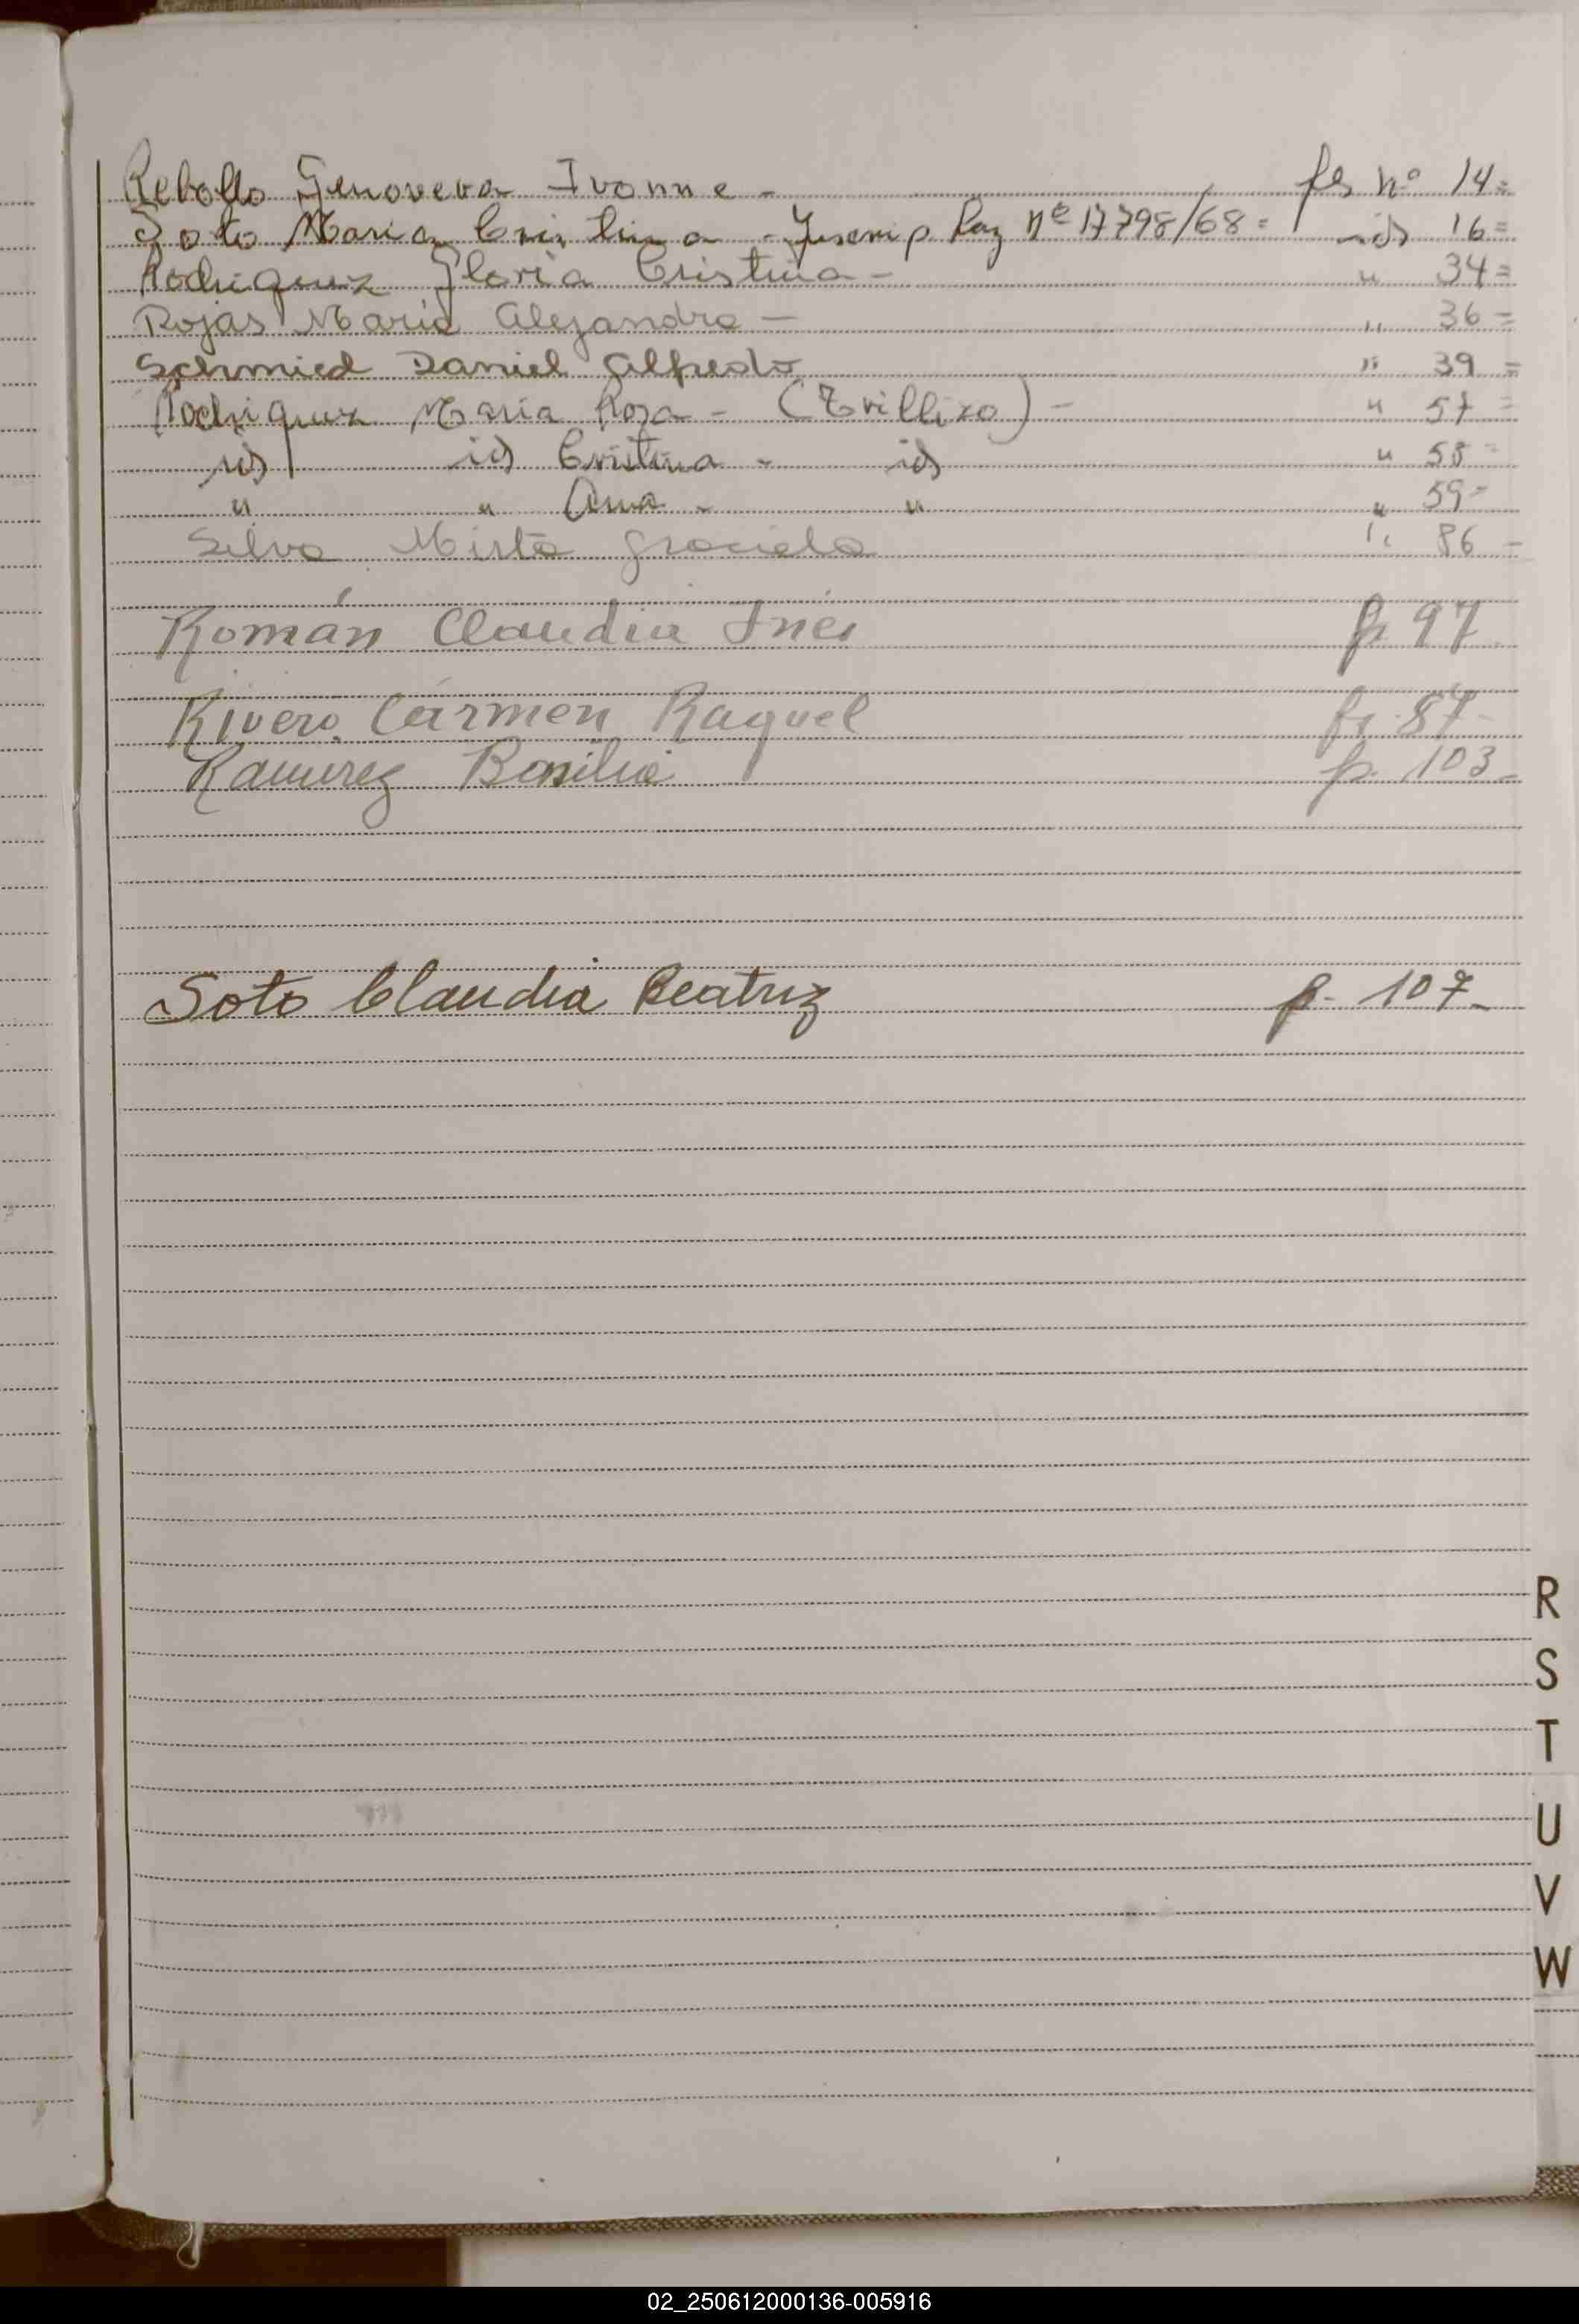 Rebollo Genoveva Ivonne - fs nº 14=
Soto Maria Cristina - Inscrip. Paz nº 17798/68= id 16=
Rodriguez Gloria Cristina - " 34=
Rojas Maria Alejandra - " 36=
Schmied Daniel Alfredo " 39=
Rodriguez Maria Rosa - (Trillizo) - " 57=
id id Cristina - id " 58-
" " Ana - " " 59-
Silva Mirta Graciela " 86-
Román Claudia Inés f. 97
Rivero Carmen Raquel f. 87-
Ramirez Basilia f. 103-
Soto Claudia Beatriz f. 107-
R
S
T
U
V
W
02_250612000136-005916